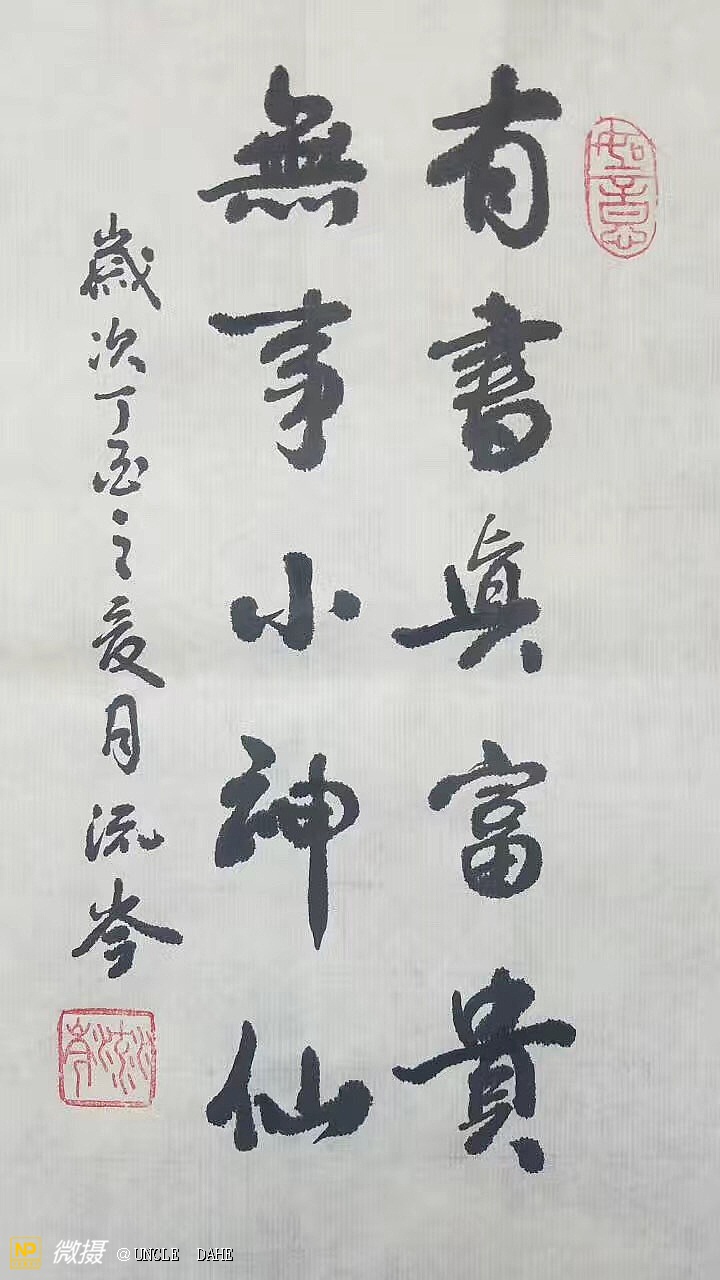 如意
有書真富貴
無事小神仙
歲次丁酉之夏月流岑
流岑
NP 微摄 @UNCLE DAHE